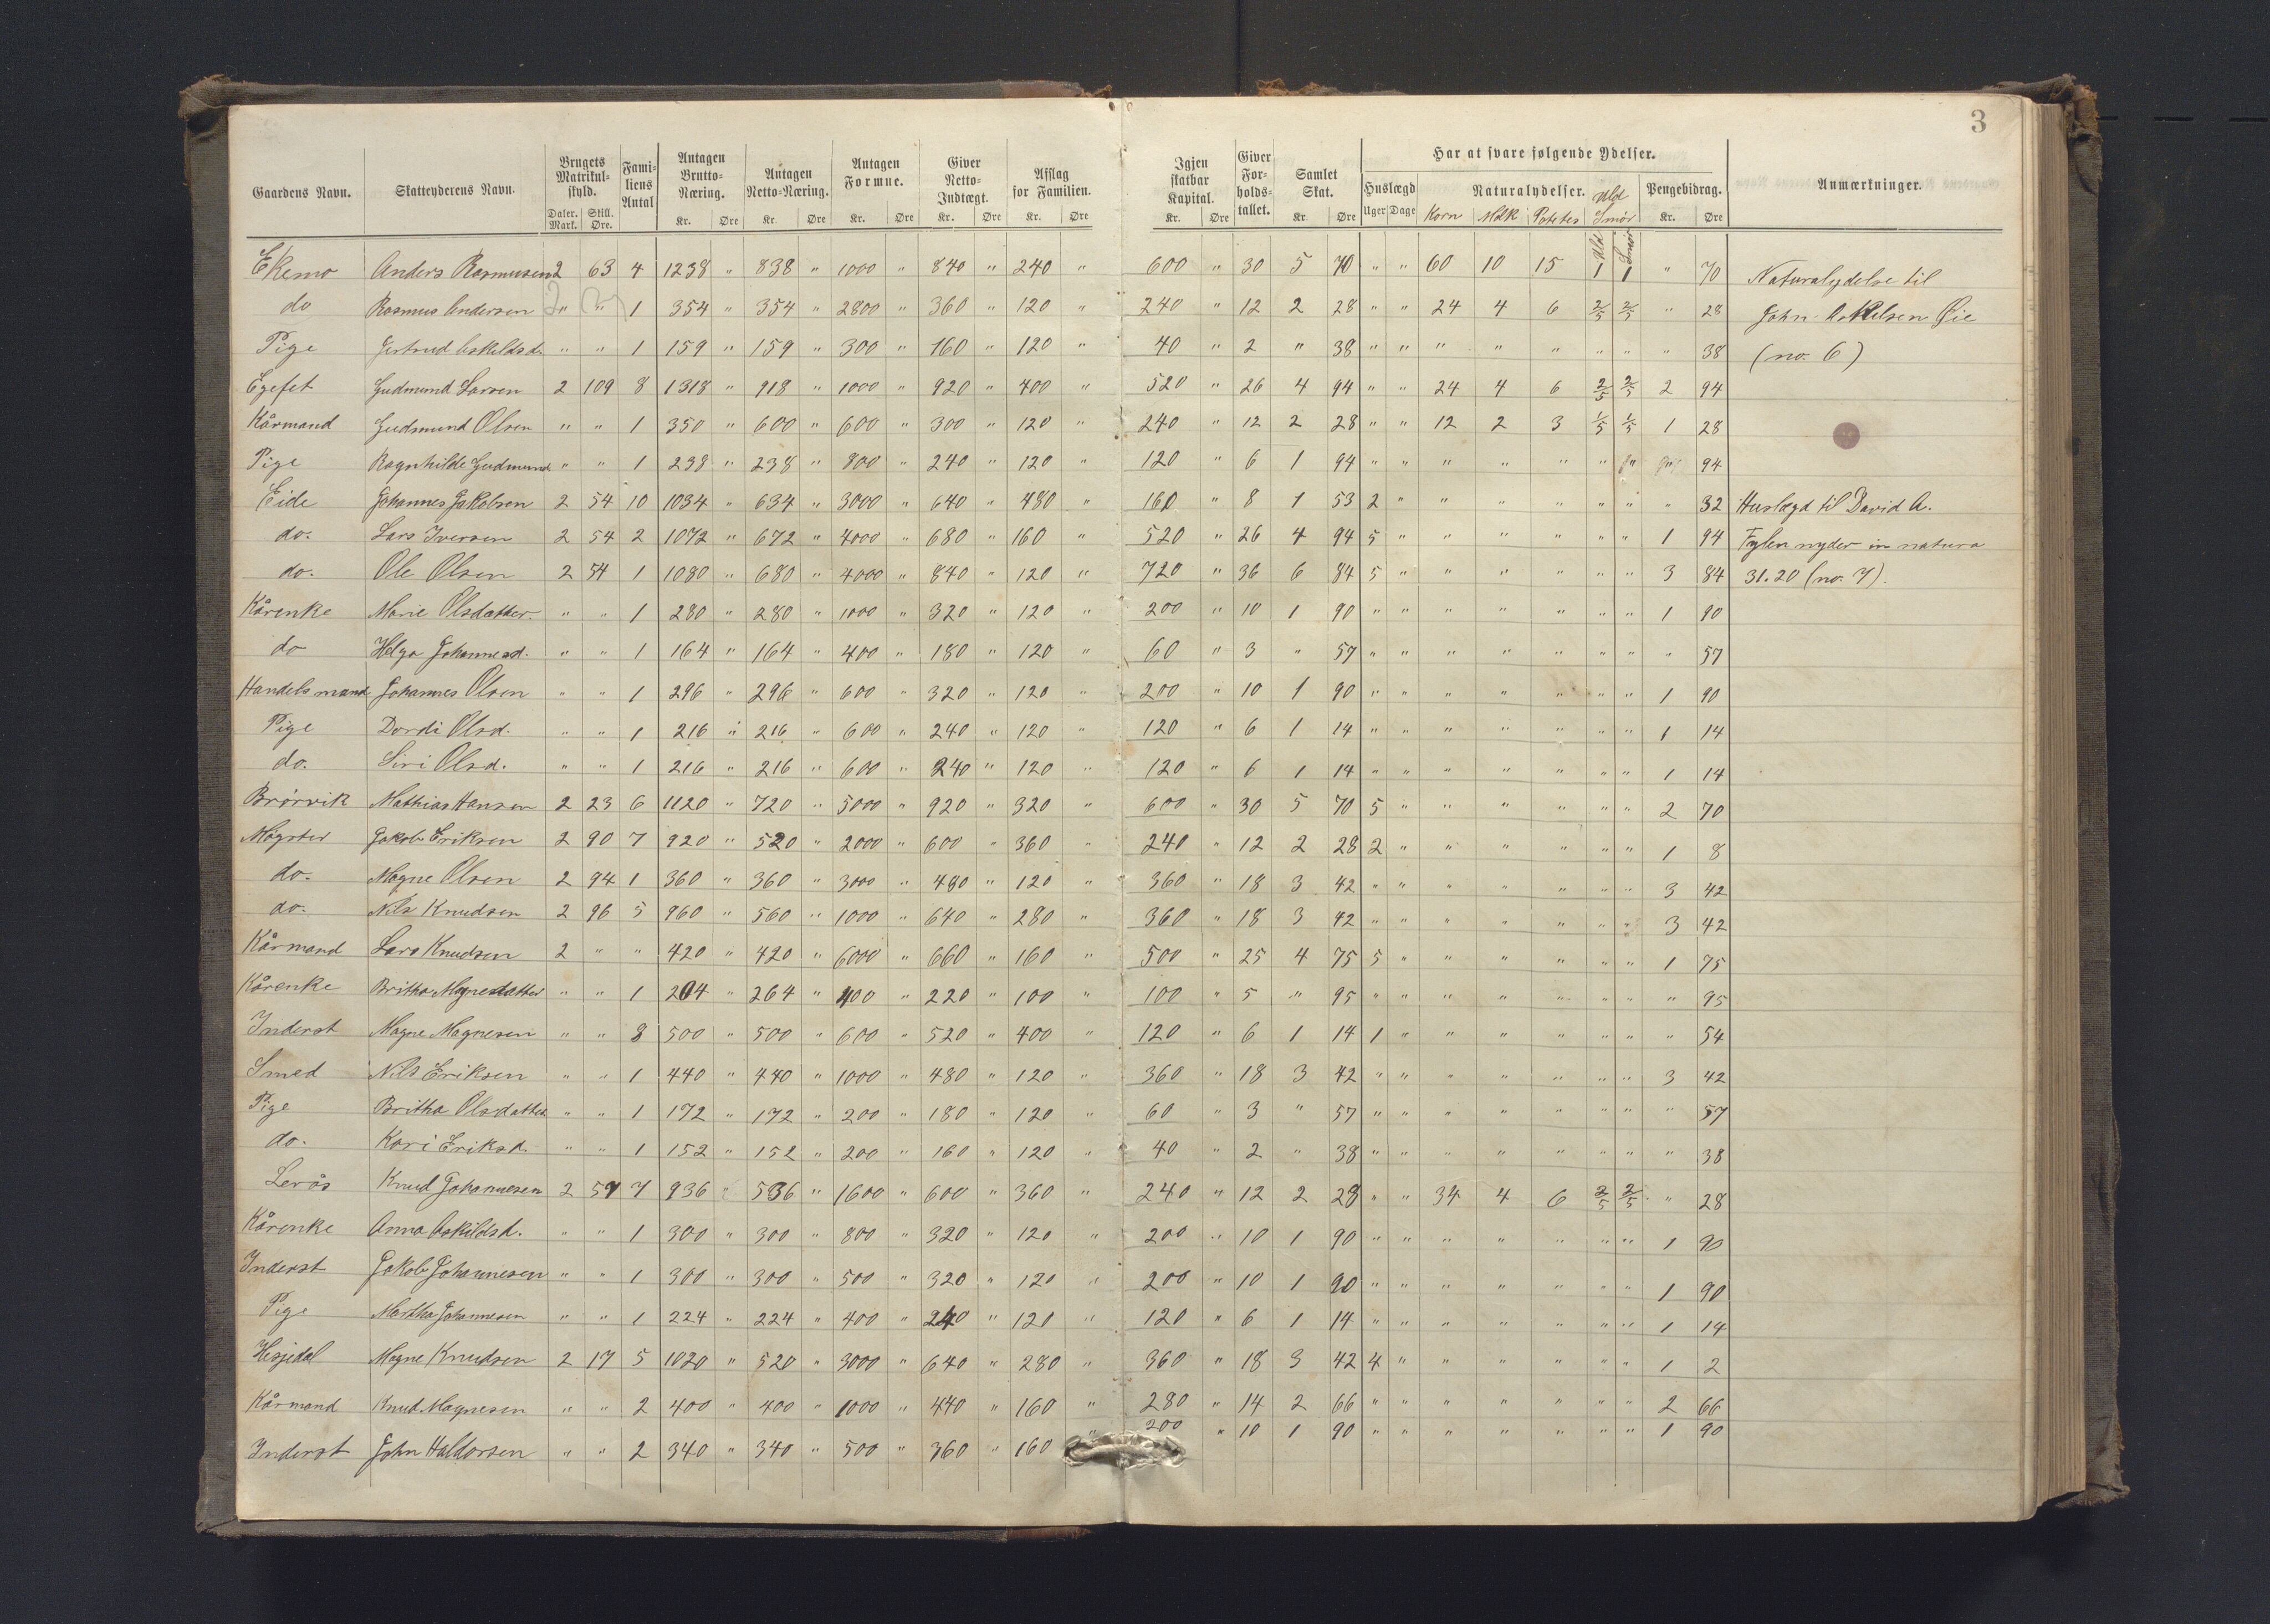 3
Gaardens Navn. Skatteyderens Navn. Brugets Matrikul-skyld. Daler. Mark. Skill. Øre. Fami-liens Antal Antagen Brutto-Næring. Kr. Øre Antagen Netto-Næring. Kr. Øre Antagen Formue. Kr. Øre Giver Netto-Indtægt. Kr. Øre Afslag for Familien. Kr. Øre Igjen skatbar Kapital. Kr. Øre Giver For-holds-tallet. Samlet Skat. Kr. Øre Har at svare følgende Ydelser. Huslægd Uger Dage Naturalydelser. Korn Melk Potetes Uld Smør Pengebidrag. Kr. Øre Anmærkninger.
Uld Smør
Ekemo Anders Rasmusen 2 63 4 1238 " 838 " 1000 " 840 " 240 " 600 " 30 5 70 " " 60 10 15 1 1 " 70 Naturalydelse til
do Rasmus Andersen " " 1 354 " 354 " 2800 " 360 " 120 " 240 " 12 2 28 " " 24 4 6 2/5 2/5 " 28 John Askelsen Øie
Pige Gertrud Askildsd. " " 1 159 " 159 " 300 " 160 " 120 " 40 " 2 " 38 " " " " " " " " 38 (no. 6)
Egefet Gudmund Larsen 2 109 8 1318 " 918 " 1000 " 920 " 400 " 520 " 26 4 94 " " 24 4 6 2/5 2/5 2 94
Kårmand Gudmund Olsen " " 1 350 " 600 " 600 " 300 " 120 " 240 " 12 2 28 " " 12 2 3 1/5 1/5 1 28
Pige Ragnhilde Gudmund " " 1 238 " 238 " 800 " 240 " 120 " 120 " 6 1 94 " " " " " " " " 94
Eide Johannes Jakobsen 2 54 10 1034 " 634 " 3000 " 640 " 480 " 160 " 8 1 53 2 " " " " " " " 32 Huslægd til David A.
do. Lars Iversen 2 54 2 1072 " 672 " 4000 " 680 " 160 " 520 " 26 4 94 5 " " " " " " 1 94 Fylen nyder in natura
do. Ole Olsen 2 54 1 1080 " 680 " 4000 " 840 " 120 " 720 " 36 6 84 5 " " " " " " 3 84 31.20 (no. 7).
Kårenke Marie Olsdatter. " " 1 280 " 280 " 1000 " 320 " 120 " 200 " 10 1 90 " " " " " " " 1 90
do Helga Johannesd. " " 1 164 " 164 " 400 " 180 " 120 " 60 " 3 " 57 " " " " " " " " 57
Handelsmand Johannes Olsen " " 1 296 " 296 " 600 " 320 " 120 " 200 " 10 1 90 " " " " " " " 1 90
Pige Dordi Olsd. " " 1 216 " 216 " 600 " 240 " 120 " 120 " 6 1 14 " " " " " " " 1 14
do. Siri Olsd. " " 1 216 " 216 " 600 " 240 " 120 " 120 " 6 1 14 " " " " " " " 1 14
Brörvik Mathias Hansen 2 23 6 1120 " 720 " 5000 " 920 " 320 " 600 " 30 5 70 5 " " " " " " 2 70
Møgster Jakob Eriksen 2 90 7 920 " 520 " 2000 " 600 " 360 " 240 " 12 2 28 2 " " " " " " 1 8
do. Magne Olsen 2 94 1 360 " 360 " 3000 " 480 " 120 " 360 " 18 3 42 " " " " " " " 3 42
do. Nils Knudsen 2 96 5 960 " 560 " 1000 " 640 " 280 " 360 " 18 3 42 " " " " " " " 3 42
Kårmand Lars Knudsen 2 " " 420 " 420 " 6000 " 660 " 160 " 500 " 25 4 75 5 " " " " " " 1 75
Kårenke Britha Magnesdatter " " 1 204 " 264 " 400 " 220 " 100 " 100 " 5 " 95 " " " " " " " " 95
Inderst Magne Magnesen " " 8 500 " 500 " 600 " 520 " 400 " 120 " 6 1 14 1 " " " " " " " 54
Smed Nils Eriksen " " 1 440 " 440 " 1000 " 480 " 120 " 360 " 18 3 42 " " " " " " " 3 42
Pige Britha Olsdatter " " 1 172 " 172 " 200 " 180 " 120 " 60 " 3 " 57 " " " " " " " " 57
do. Kari Eriksd. " " 1 152 " 152 " 200 " 160 " 120 " 40 " 2 " 38 " " " " " " " " 38
Lerås Knud Johannesen 2 57 7 936 " 536 " 1600 " 600 " 360 " 240 " 12 2 28 " " 34 4 6 2/5 2/5 " 28
Kårenke Anna Askildsd. " " 1 300 " 300 " 800 " 320 " 120 " 200 " 10 1 90 " " " " " " " 1 90
Inderst Jakob Johannesen " " 1 300 " 300 " 500 " 320 " 120 " 200 " 10 1 90 " " " " " " " 1 90
Pige Martha Johannesen " " 1 224 " 224 " 400 " 240 " 120 " 120 " 6 1 14 " " " " " " " 1 14
Hesjedal Magne Knudsen 2 17 5 1020 " 520 " 3000 " 640 " 280 " 360 " 18 3 42 4 " " " " " " 1 2
Kårmand Knud Magnesen " " 2 400 " 400 " 1000 " 440 " 160 " 280 " 14 2 66 " " " " " " " 2 66
Inderst John Haldorsen " " 2 340 " 340 " 500 " 360 " 160 " 200 " 10 1 90 " " " " " " " 1 90